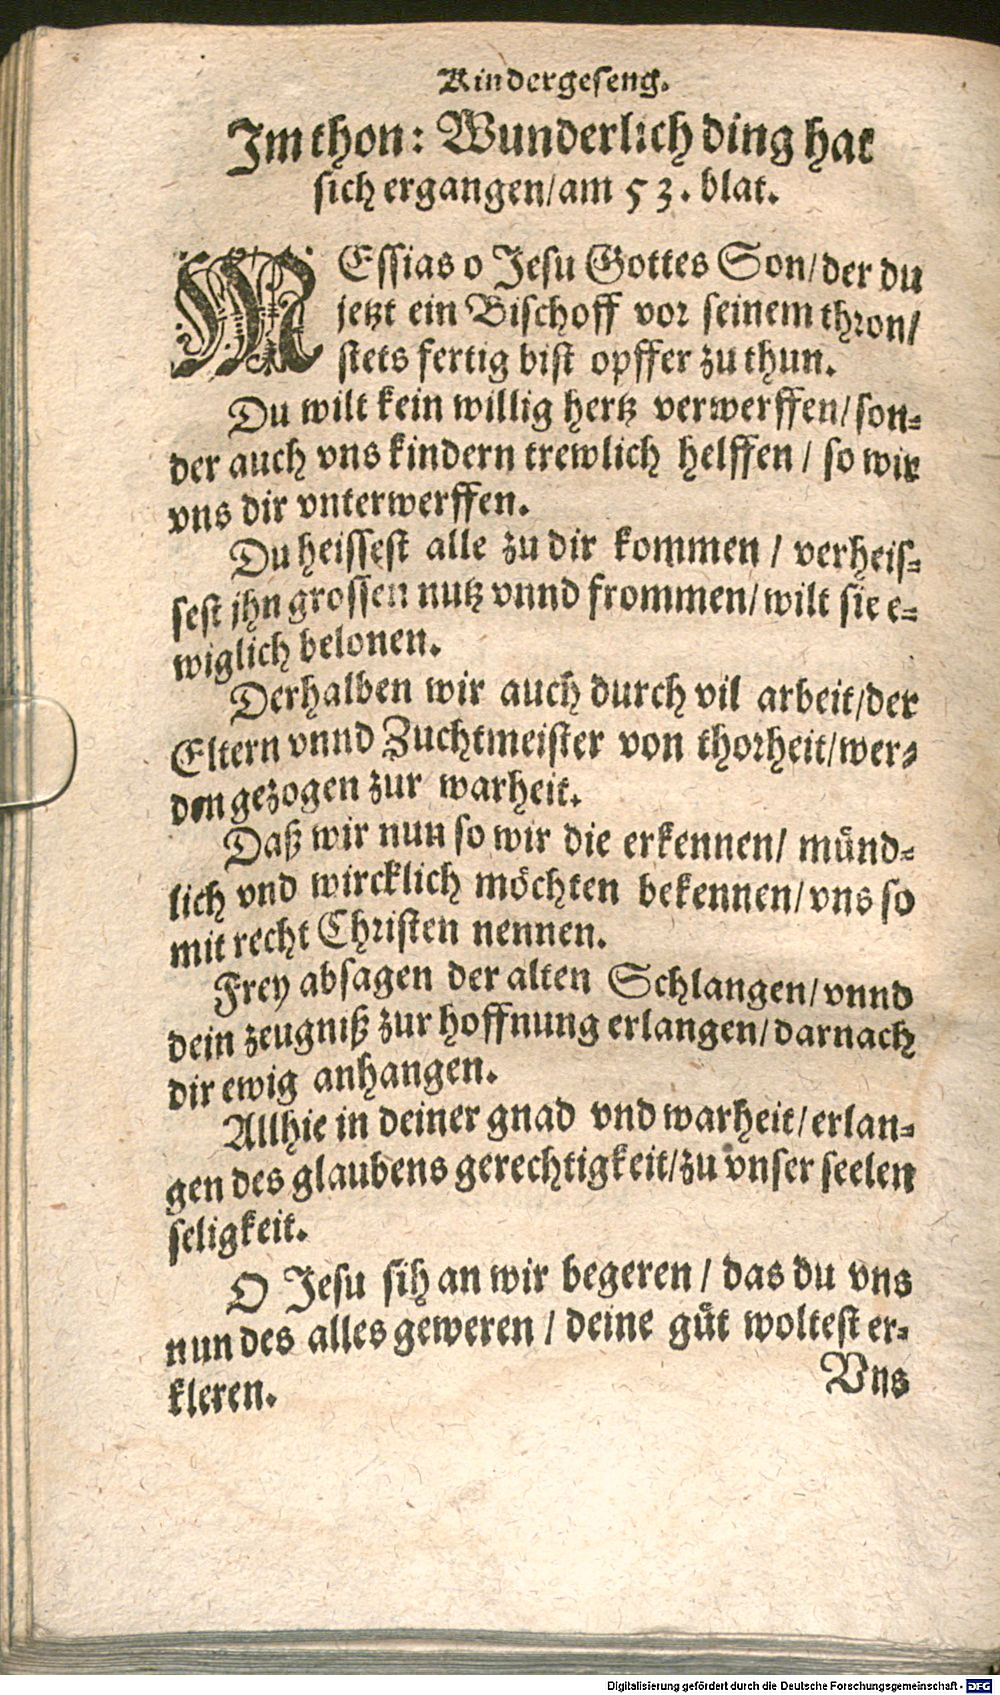 Kindergeseng.
Im thon: Wunderlich ding hat
sich ergangen/am 53. blat.
MEssias o Jesu Gottes Son/der du
jetzt ein Bischoff vor seinem thron/
stets fertig bist opffer zu thun.
Du wilt kein willig hertz verwerffen/son-
der auch vns kindern trewlich helffen/ so wir
vns dir vnterwerffen.
Du heissest alle zu dir kommen / verheis-
sest jhn grossen nutz vnnd frommen/wilt sie e-
wiglich belonen.
Derhalben wir auch durch vil arbeit/der
Eltern vnnd Zuchtmeister von thorheit/wer-
den gezogen zur warheit.
Daß wir nun so wir die erkennen/ münd-
lich vnd wircklich möchten bekennen/vns so
mit recht Christen nennen.
Frey absagen der alten Schlangen/vnnd
dein zeugniß zur hoffnung erlangen/darnach
dir ewig anhangen.
Allhie in deiner gnad vnd warheit/erlan-
gen des glaubens gerechtigkeit/zu vnser seelen
seligkeit.
O Jesu sih an wir begeren / das du vns
nun des alles geweren / deine güt woltest er-
kleren.
Vns
Digitalisierung gefördert durch die Deutsche Forschungsgemeinschaft - DFG